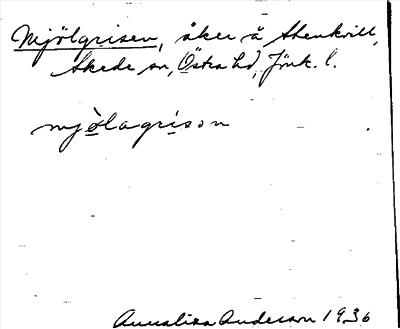 Mjölgrisen, åker å Stenkvill,
Skede sn, Östra hd, Jönk. l.
mjö̀lagrison
Annalisa Anderson 1936